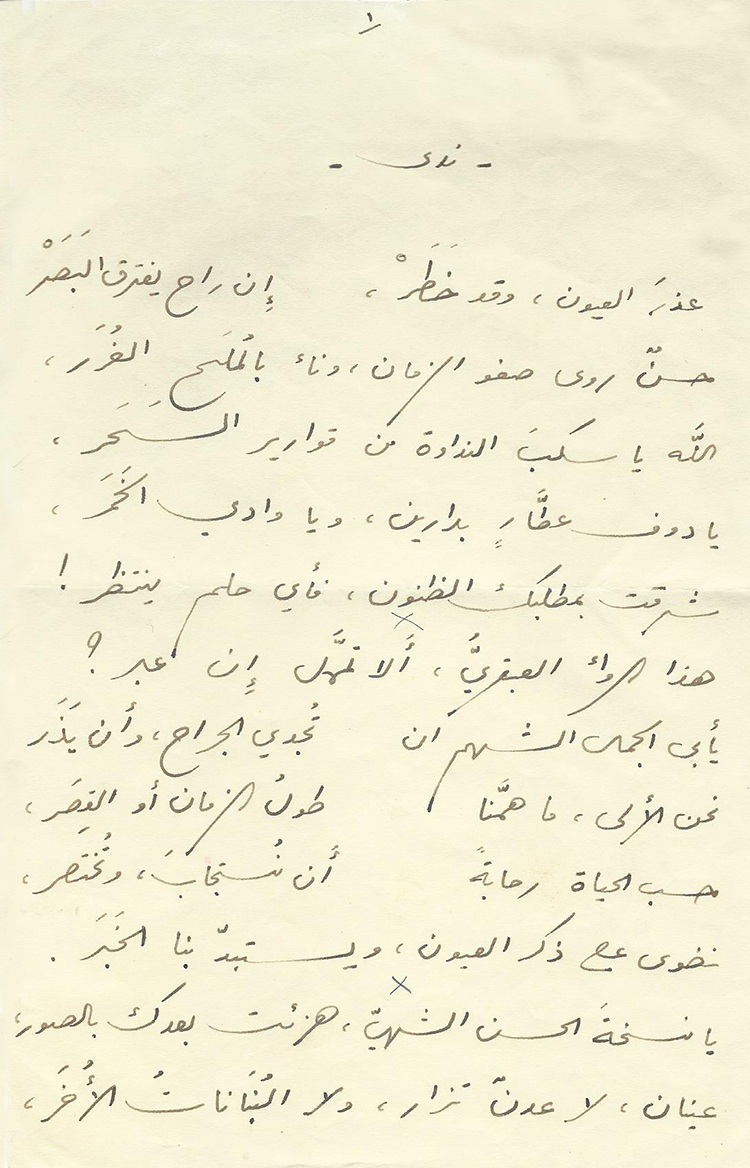 ١
- ندى -
عذرَ العيون ، وقد خَطَرْ ، إِن راح يفترق البَصَرْ
حسنٌ روى صفو الزمان ، وناء بالمُلَح الغُرَر ،
اللَّه يا سكبَ النداوة من قوارير السَّحَر ،
يا دوف عطَّارٍ بدارين ، ويا وادي الخَمَر ،
شرقت بمطلبك الظنون ، فأي حلم ينتظر !
هذا الرواء العبقريُّ ، أَلا تمهَّل إِن عبر ؟
يأبى الجمال الشهم ان تُجدي الجراح ، وأن يَذَر
نحن الأُلى ، ما همَّنا طولُ الزمان أو القِصَر ،
حسب الحياة رحابةً أَن نُستجابَ ، ونُختصر ،
نضوى على ذكر العيون ، ويستبدّ بنا الخَبَر .
يا نسخةَ الحسن الشهيّ ، هزئت بعدك بالصور ،
عينان ، لا عدنٌ تزار ، ولا البُنَاناتُ الأُخَر ،